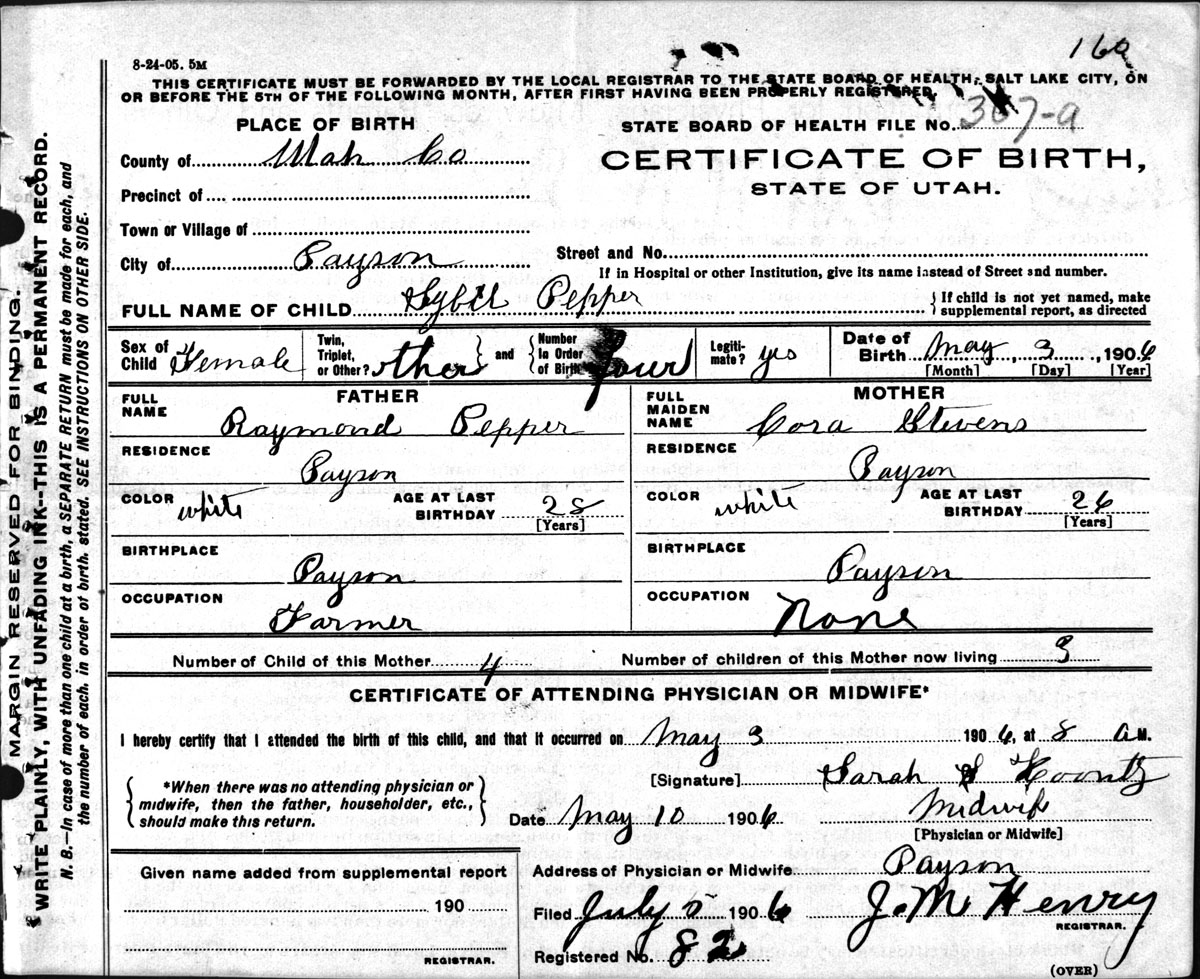 160
8-24-05. 5M
THIS CERTIFICATE MUST BE FORWARDED BY THE LOCAL REGISTRAR TO THE STATE BOARD OF HEALTH, SALT LAKE CITY, ON
OR BEFORE THE 5TH OF THE FOLLOWING MONTH, AFTER FIRST HAVING BEEN PROPERLY REGISTERED.
MARGIN RESERVED FOR BINDING.
WRITE PLAINLY, WITH UNFADING INK-THIS IS A PERMANENT RECORD.
N. B.—In case of more than one child at a birth, a SEPARATE RETURN must be made for each, and
the number of each, in order of birth, stated. SEE INSTRUCTIONS ON OTHER SIDE.
PLACE OF BIRTH
STATE BOARD OF HEALTH FILE No. 367-a
County of Utah Co
CERTIFICATE OF BIRTH,
STATE OF UTAH.
Precinct of
Town or Village of
City of Payson
Street and No.
If in Hospital or other Institution, give its name instead of Street and number.
FULL NAME OF CHILD Sybil Pepper
{ If child is not yet named, make
supplemental report, as directed
Sex of Child Female
Twin, Triplet, or Other? other } and { Number In Order of Birth four
Legiti- mate? yes
Date of Birth May, 3, 1906
[Month] [Day] [Year]
FATHER
FULL NAME Raymond Pepper
RESIDENCE Payson
COLOR white AGE AT LAST BIRTHDAY 28
[Years]
BIRTHPLACE Payson
OCCUPATION Farmer
MOTHER
FULL MAIDEN NAME Cora Stevens
RESIDENCE Payson
COLOR white AGE AT LAST BIRTHDAY 26
[Years]
BIRTHPLACE Payson
OCCUPATION None
Number of Child of this Mother 4 Number of children of this Mother now living 3
CERTIFICATE OF ATTENDING PHYSICIAN OR MIDWIFE*
I hereby certify that I attended the birth of this child, and that it occurred on May 3 1906, at 8 a M.
{ *When there was no attending physician or
midwife, then the father, householder, etc.,
should make this return. }
[Signature] Sarah S Koontz
Date May 10 1906 Midwife
[Physician or Midwife]
Given name added from supplemental report
190
REGISTRAR.
Address of Physician or Midwife Payson
Filed July 5 1906 J. M Henry
REGISTRAR.
Registered No. 82
(OVER)